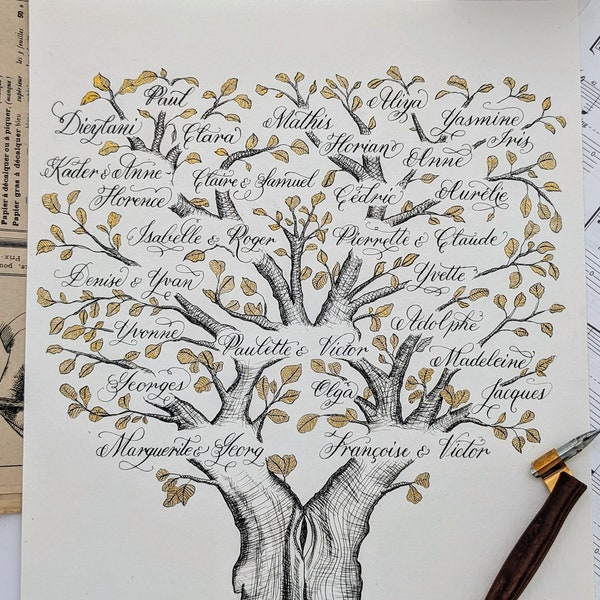 Paul
Aliya
Dieylani
Clara
Mathis
Yasmine
Florian
Anne
Iris
Kader & Anne-
Florence
Claire & Samuel
Cédric
Aurélie
Isabelle & Roger
Pierrette & Claude
Denise & Yvan
Yvette
Yvonne
Paulette & Victor
Adolphe
Madeleine
Georges
Olga
Jacques
Marguerite & Georg
Françoise & Victor
Papier à décalquer ou à piquer
Papier gras à décalquer bleu